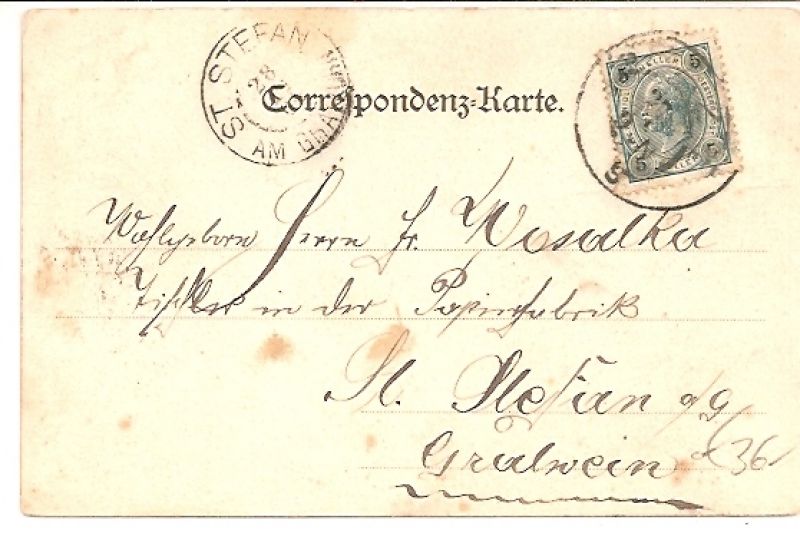 ST. STEFAN AM GRA
28
Correspondenz-Karte.
5 HELLER 5
5 HELLER 5
Wohlgeborn Herrn Fr. Wosalka
Tischler in der Papierfabrik
St. Stefan a/g
Gratwein
36